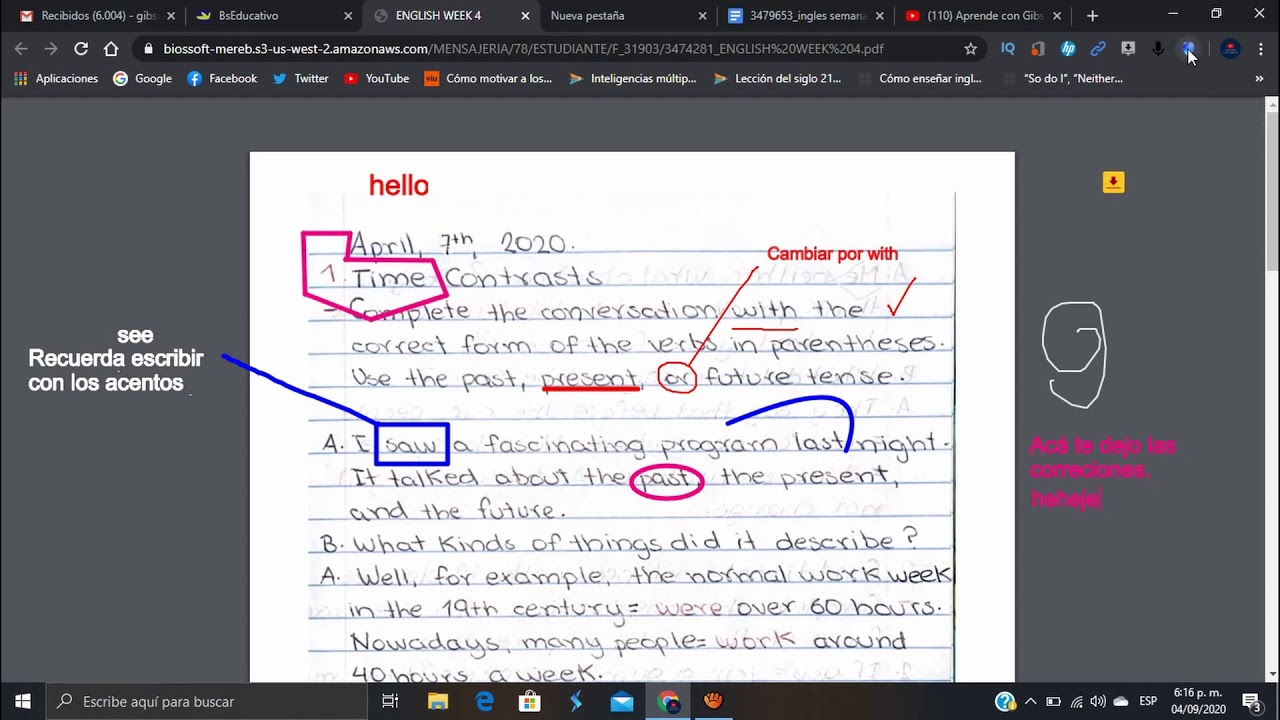 Recibidos (6.004) - gibs
BsEducativo
ENGLISH WEEK 4
Nueva pestaña
3479653_ingles semana
(110) Aprende con Gibs
biossoft-mereb.s3-us-west-2.amazonaws.com/MENSAJERIA/78/ESTUDIANTE/F_31903/3474281_ENGLISH%20WEEK%204.pdf
Aplicaciones
Google
Facebook
Twitter
YouTube
viu
Cómo motivar a los...
Inteligencias múltip...
Lección del siglo 21...
Cómo enseñar ingl...
"So do I", "Neither...
»
hello
April, 7th, 2020.
Cambiar por with
1. Time Contrasts
- Complete the conversation with the
correct form of the verbs in parentheses.
Use the past, present, or future tense.
see
Recuerda escribir
con los acentos
A. I saw a fascinating program last night.
It talked about the past, the present,
and the future.
Acá te dejo las
correciones.
heheje
B. What kinds of things did it describe?
A. Well, for example, the normal work week
in the 19th century= were over 60 hours.
Nowadays, many people= work around
40 hours a week.
Escribe aquí para buscar
ESP
6:16 p. m.
04/09/2020
3